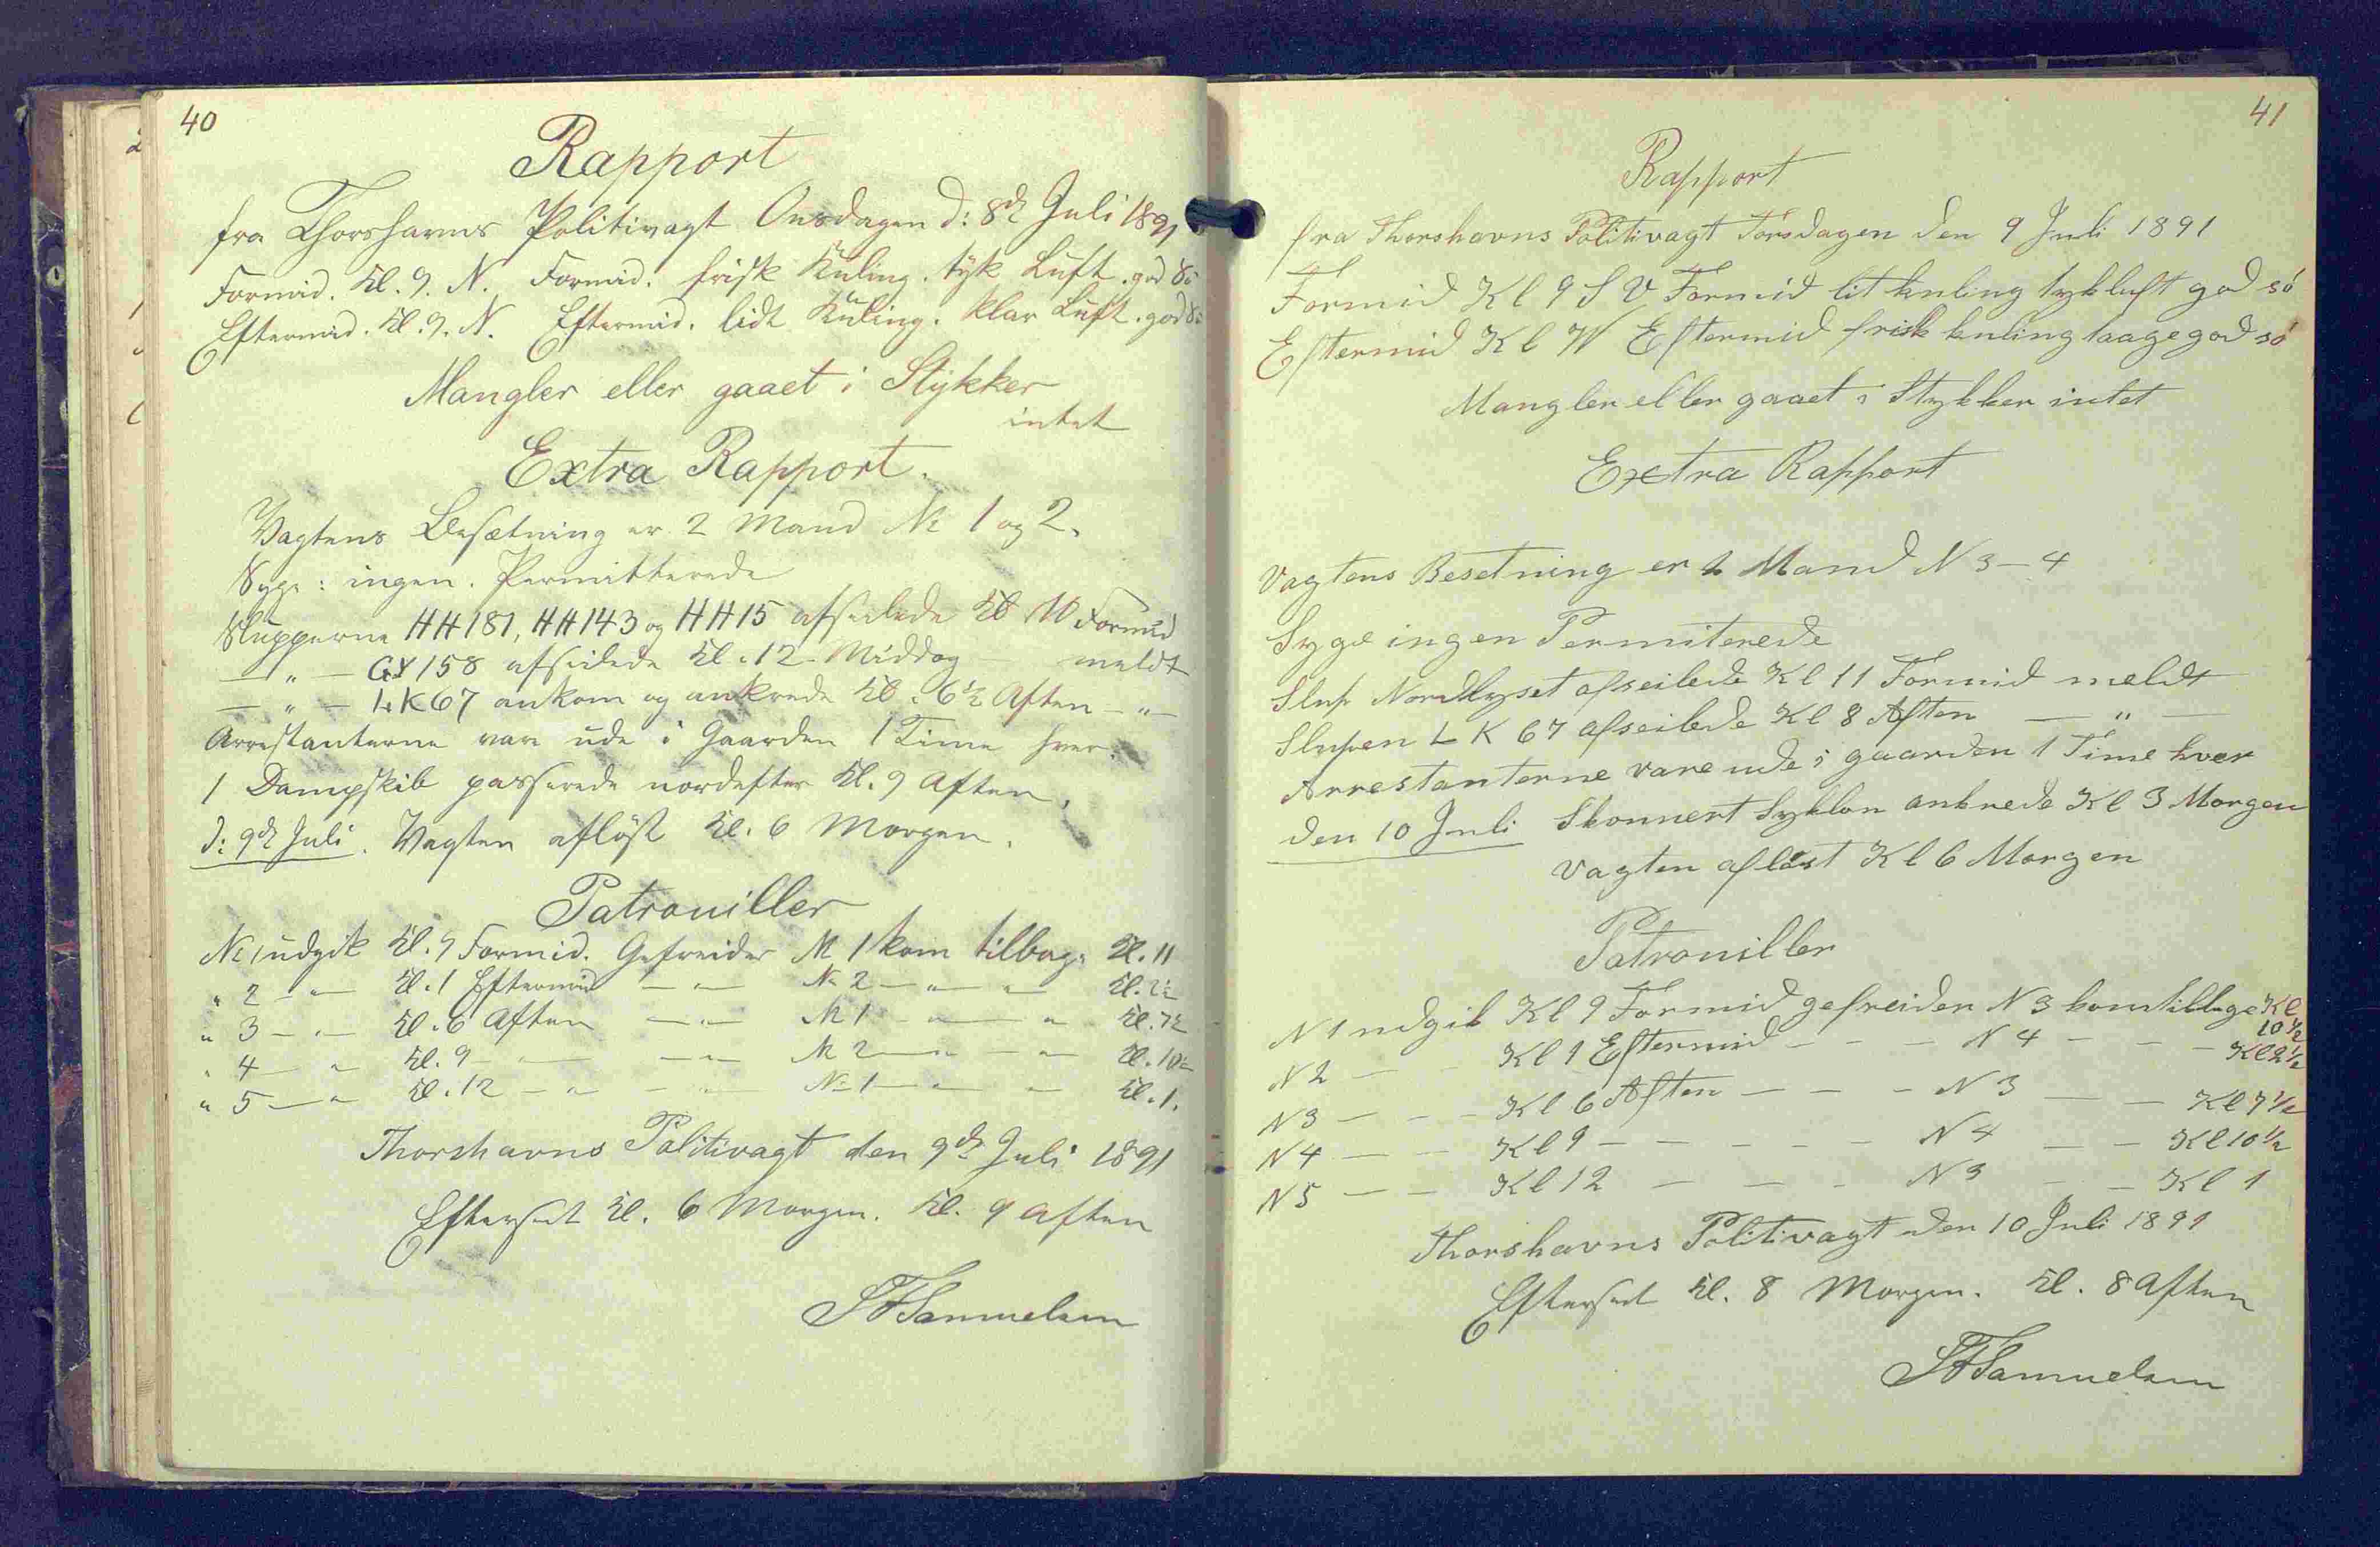 40
Rapport
fra Thorshavns Politivagt Onsdagen d: 8de Juli 1891
Formid. Kl. 9. N. Formid. frisk Kuling. tyk Luft. god Sö
Eftermid. Kl. 9. N. Eftermid. lidt Kuling. klar Luft. god Sö
Mangler eller gaaet i Stykker
intet
Extra Rapport.
Vagtens Besætning er 2 Mand No 1 og 2.
Syge: ingen. Permitterede
Slupperne HH181, HH143 og HH15 afseilede Kl 10 Formid
— " — GY158 afseilede Kl. 12 Middag meldt
— " — LK67 ankom og ankrede Kl. 6½ Aften — " —
Arrestanterne var ude i Gaarden 1 Time hver.
1 Dampskib passerede nordefter Kl. 9 Aften.
d: 9de Juli. Vagten aflöst Kl. 6 Morgen.
Patrouiller
No 1 udgik Kl. 9 Formid. Gefreider No 1 kom tilbage Kl. 11
" 2 — " — Kl. 1 Eftermid — " — No 2 — " — " Kl. 2½
" 3 — " — Kl. 6 Aften — " — No 1 — " — " Kl. 7½
" 4 — " Kl. 9 — " — — " — No 2 — " — " Kl. 10½
" 5 — " Kl. 12 — " — " — No 1 — " — " Kl. 1.
Thorshavns Politivagt den 9de Juli 1891
Efterseet Kl. 6 Morgen. Kl. 9 Aften
Samuelsen
41
Rapport
fra Thorshavns Politivagt Torsdagen den 9 Juli 1891
Formid Kl 9 S V Formid lit kuling tykluft god sö
Eftermid Kl W Eftermid frisk kuling taage god sö
Mangler eller gaaet i Stykker intet
Extra Rapport
Vagtens Besetning er 2 Mand N 3 – 4
Syge ingen Permiterede
Slup Nordlyset afseilede Kl 11 Formid meldt
Slupen L K 67 afseilede Kl 8 Aften — " —
Arrestanterne vare ude i gaarden 1 Time hver
den 10 Juli Skonnert Syklon ankrede Kl 3 Morgen
Vagten aflöst Kl 6 Morgen
Patrouiller
N 1 udgik Kl 9 Formid gefreiden N 3 kom tilbage Kl 10½
N 2 — — Kl 1 Eftermid — — — N 4 — — — Kl 2½
N 3 — — — Kl 6 Aften — — — N 3 — — Kl 7½
N 4 — — Kl 9 — — — — — N 4 — — Kl 10½
N 5 — — Kl 12 — — — N 3 — — Kl 1
Thorshavns Politivagt den 10 Juli 1891
Efterseet Kl. 8 Morgen. Kl. 8 Aften
Samuelsen